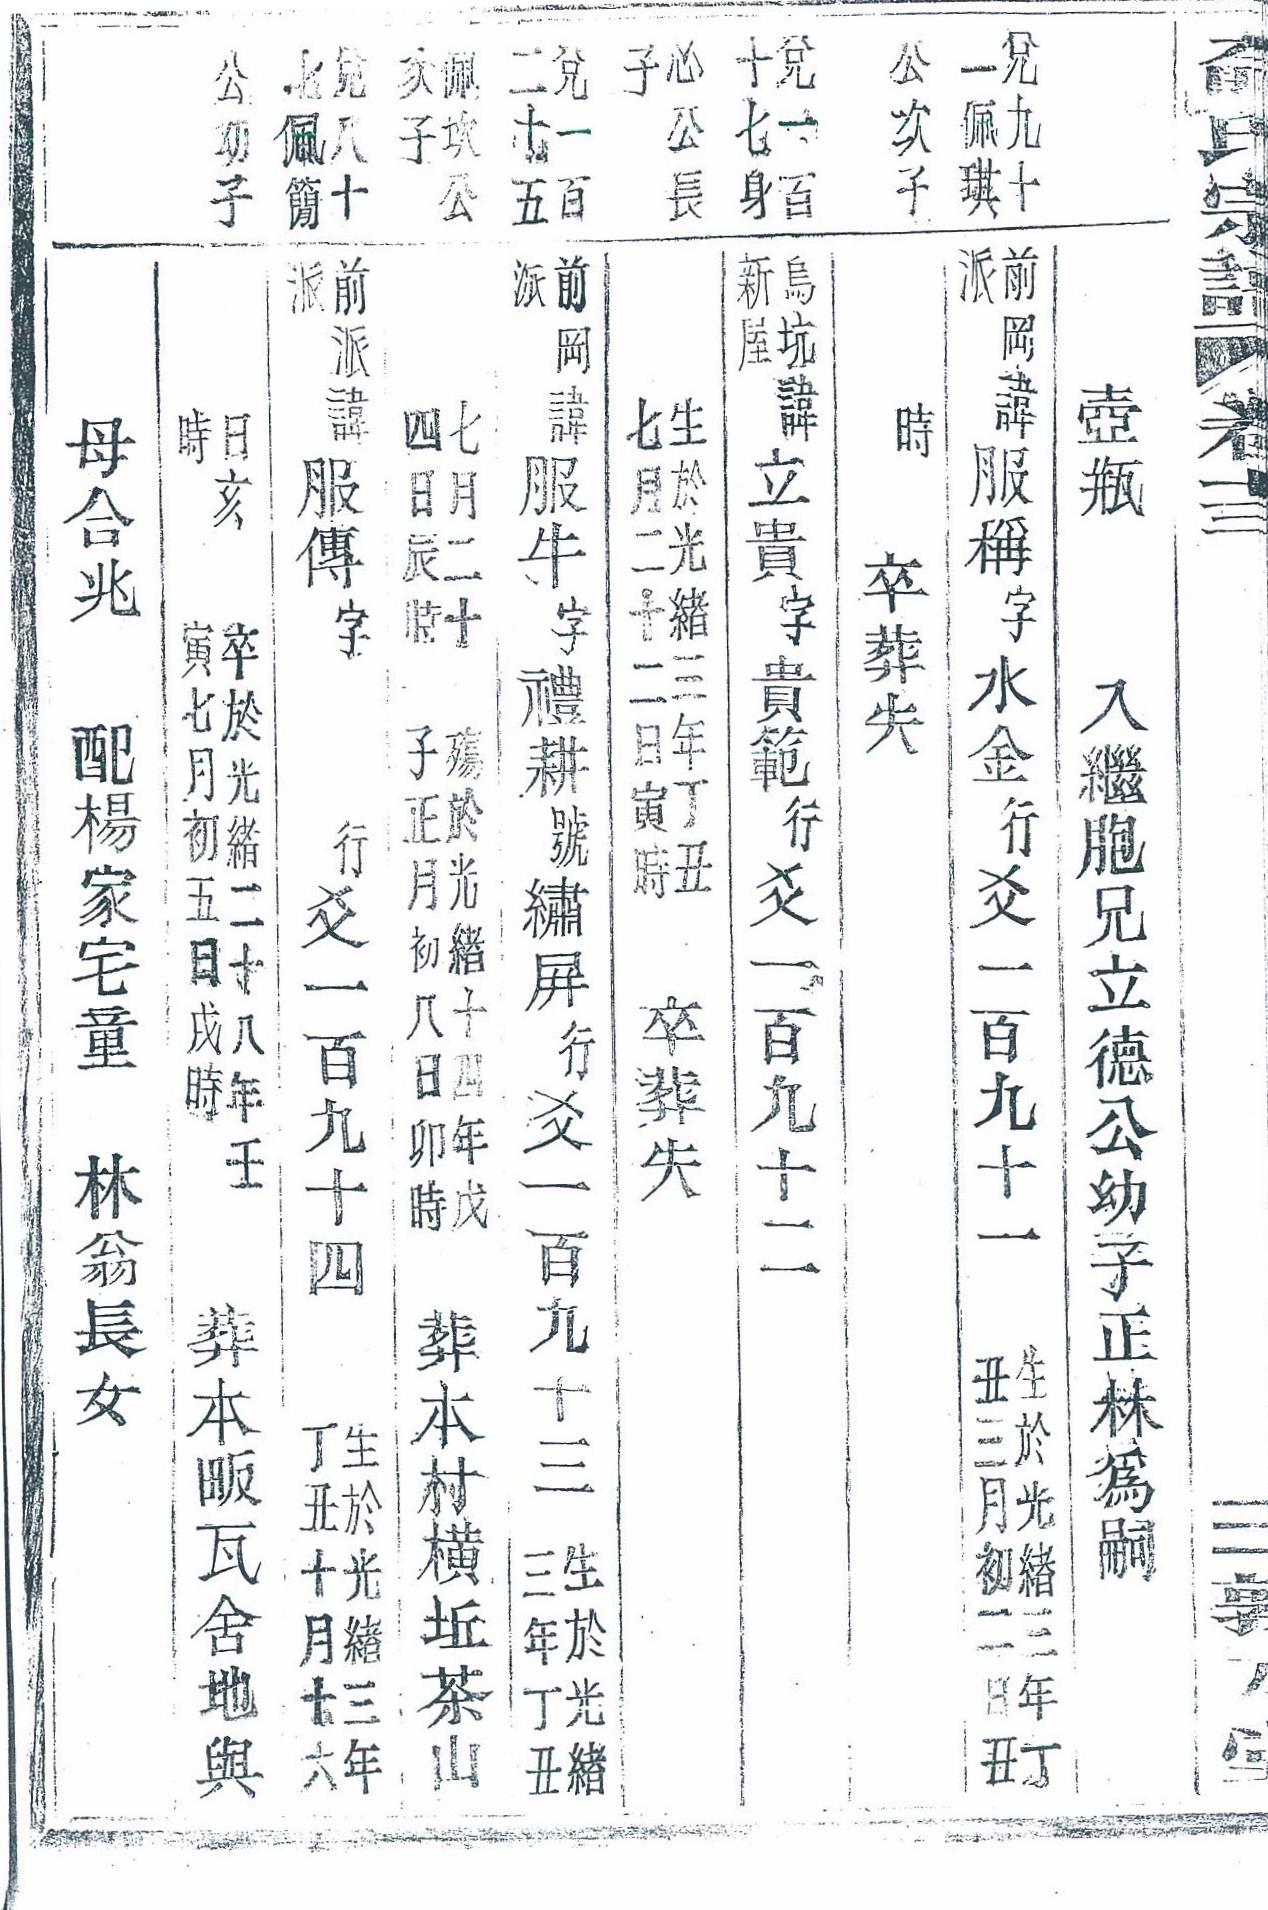 宗譜 卷三
壺瓶 入繼胞兄立德公幼子正林爲嗣
兌九十
一佩琪
公次子
前岡
派
諱服稱字水金行爻一百九十一
生於光緒三年丁
丑三月初二日丑
時
卒葬失
兌一百
十七身
心公長
子
烏坑
新屋
諱立貴字貴範行爻一百九十二
生於光緒三年丁丑
七月二十二日寅時
卒葬失
兌一百
二十五
佩坎公
次子
前岡
派
諱服牛字禮耕號繡屏行爻一百九十三
生於光緒
三年丁丑
七月二十
四日辰時
殤於光緒十四年戊
子正月初八日卯時
葬本村橫坵茶山
兌八十
七佩簡
公幼子
前派
派
諱服傳字 行爻一百九十四
生於光緒三年
丁丑十月十六
日亥
時
卒於光緒二十八年壬
寅七月初五日戌時
葬本畈瓦舍地與
母合兆 配楊家宅童 林翁長女